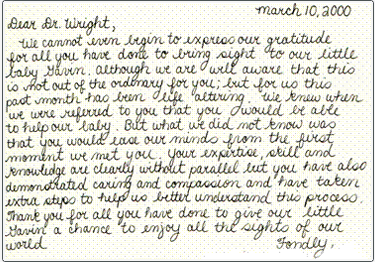 march 10, 2000
Dear Dr. Wright,
We cannot even begin to express our gratitude
for all you have done to bring sight to our little
baby Gavin. Although we are well aware that this
is not out of the ordinary for you; but for us this
past month has been life altering. We knew when
we were referred to you that you would be able
to help our baby. But what we did not know was
that you would ease our minds from the first
moment we met you. Your expertise, skill and
knowledge are clearly without parallel but you have also
demonstrated caring and compassion and have taken
extra steps to help us better understand this process.
Thank you for all you have done to give our little
Gavin a chance to enjoy all the sights of our
world Fondly,